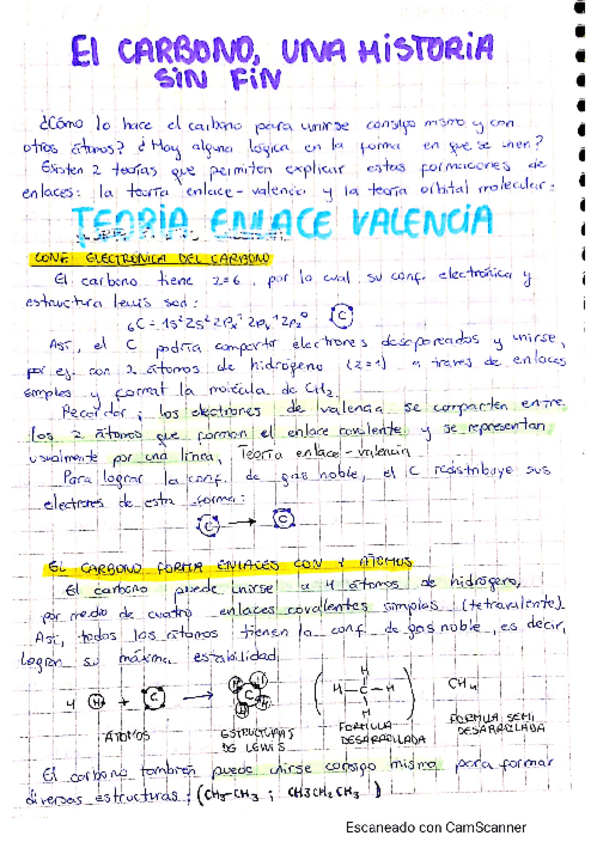 El CARBONO, UNA HISTORIA
SIN FIN
¿Cómo lo hace el carbono para unirse consigo mismo y con
otros átomos? ¿Hay alguna logica en la forma en que se unen?
Existen 2 teorías que permiten explicar estas formaciones de
enlaces: la teoría enlace-valencia y la teoría orbital molecular:
TEORÍA ENLACE VALENCIA
CONF. ELECTRONICA DEL CARBONO
El carbono tiene z=6, por lo cual su conf. electrónica y
estructura lewis son:
6C = 1s² 2s² 2px¹ 2py¹ 2pz⁰ C
Así, el C podría compartir electrones desapareados y unirse,
por ej. con 2 átomos de hidrógeno (z=1) a traves de enlaces
simples y format la molécula de CH2.
Recordar; los electrones de valencia se comparten entre
los 2 átomos que forman el enlace covalente y se representan
usualmente por una línea, Teoría enlace-valencia
Para lograr la conf. de gas noble, el C redistribuye sus
electrones de esta forma:
C → C
EL CARBONO FORMA ENLACES CON 4 ÁTOMOS
El carbono puede unirse a 4 átomos de hidrógeno,
por medio de cuatro enlaces covalentes simples (tetravalente).
Así, todos los átomos tienen la conf. de gas noble, es decir,
logran su máxima estabilidad.
4 H + C → H H C H H ( H H-C-H H ) CH4
ÁTOMOS ESTRUCTURAS DE LEWIS FORMULA DESARROLLADA FORMULA SEMI DESARROLLADA
El carbono también puede unirse consigo mismo para formar
diversas estructuras: (CH3-CH3 ; CH3CH2CH3)
Escaneado con CamScanner